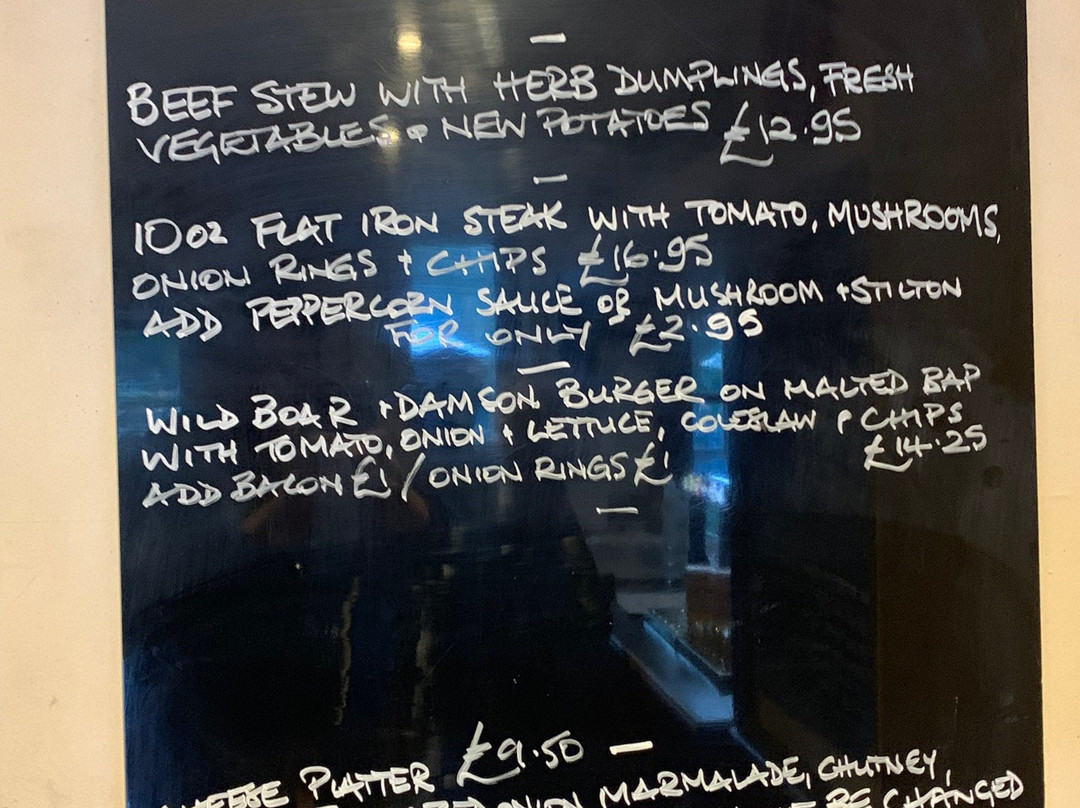 BEEF STEW WITH HERB DUMPLINGS, FRESH
VEGETABLES + NEW POTATOES £12.95
10oz FLAT IRON STEAK WITH TOMATO, MUSHROOMS,
ONION RINGS + CHIPS £16.95
ADD PEPPERCORN SAUCE OR MUSHROOM + STILTON
FOR ONLY £2.95
WILD BOAR + DAMSON BURGER ON MALTED BAP
WITH TOMATO, ONION + LETTUCE, COLESLAW + CHIPS
£14.25
ADD BACON £1 / ONION RINGS £1
£9.50
CHEESE PLATTER
ONION MARMALADE, CHUTNEY,
BE CHANGED